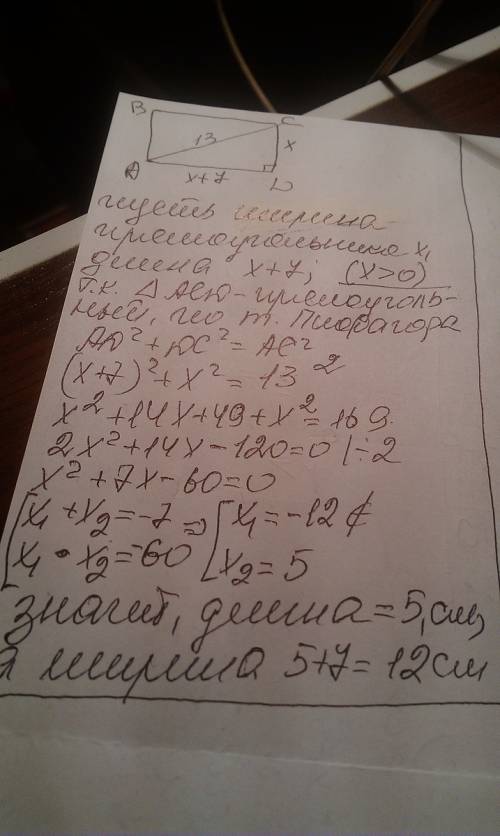 B C
13 x
A x+7 D
пусть ширина
прямоугольника x,
длина x+7; (x>0)
т.к. △ ACD - прямоуголь-
ный, по т. Пифагора
AD² + DC² = AC²
(x+7)² + x² = 13²
x² + 14x + 49 + x² = 169.
2x² + 14x - 120 = 0 | ÷2
x² + 7x - 60 = 0
[ x₁ + x₂ = -7 ⇒ [ x₁ = -12 ∉
[ x₁ • x₂ = -60 [ x₂ = 5
значит, длина = 5, см,
а ширина 5+7 = 12 см